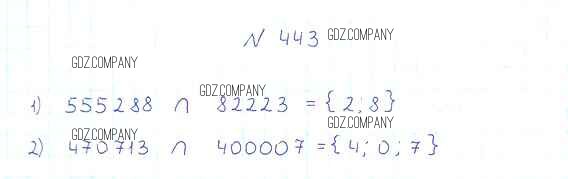 N 443 GDZ.COMPANY
GDZ.COMPANY
GDZ.COMPANY
1) 555288 ∩ 82223 = { 2; 8 }
GDZ.COMPANY GDZ.COMPANY
2) 470713 ∩ 400007 = { 4; 0; 7 }